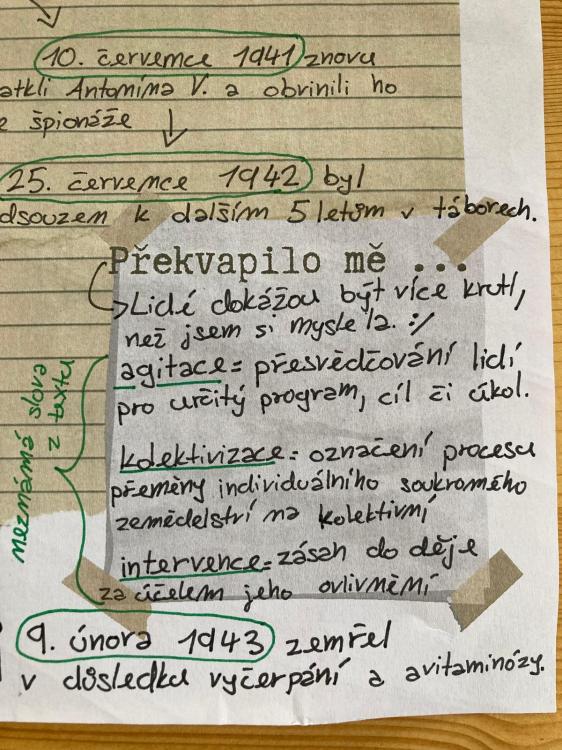 10. července 1941 znovu
atkli Antonína V. a obvinili ho
e špionáže
25. července 1942 byl
dsouzen k dalším 5 letům v táborech.
Překvapilo mě ...
Lidé dokážou být více krutí,
než jsem si myslela. :/
agitace = přesvědčování lidí
pro určitý program, cíl či úkol.
neznámá slova
z textu
kolektivizace = označení procesu
přeměny individuálního soukromého
zemědelství na kolektivní
intervence = zásah do děje
za účelem jeho ovlivnění
9. února 1943 zemřel
v důsledku vyčerpání a avitaminózy.